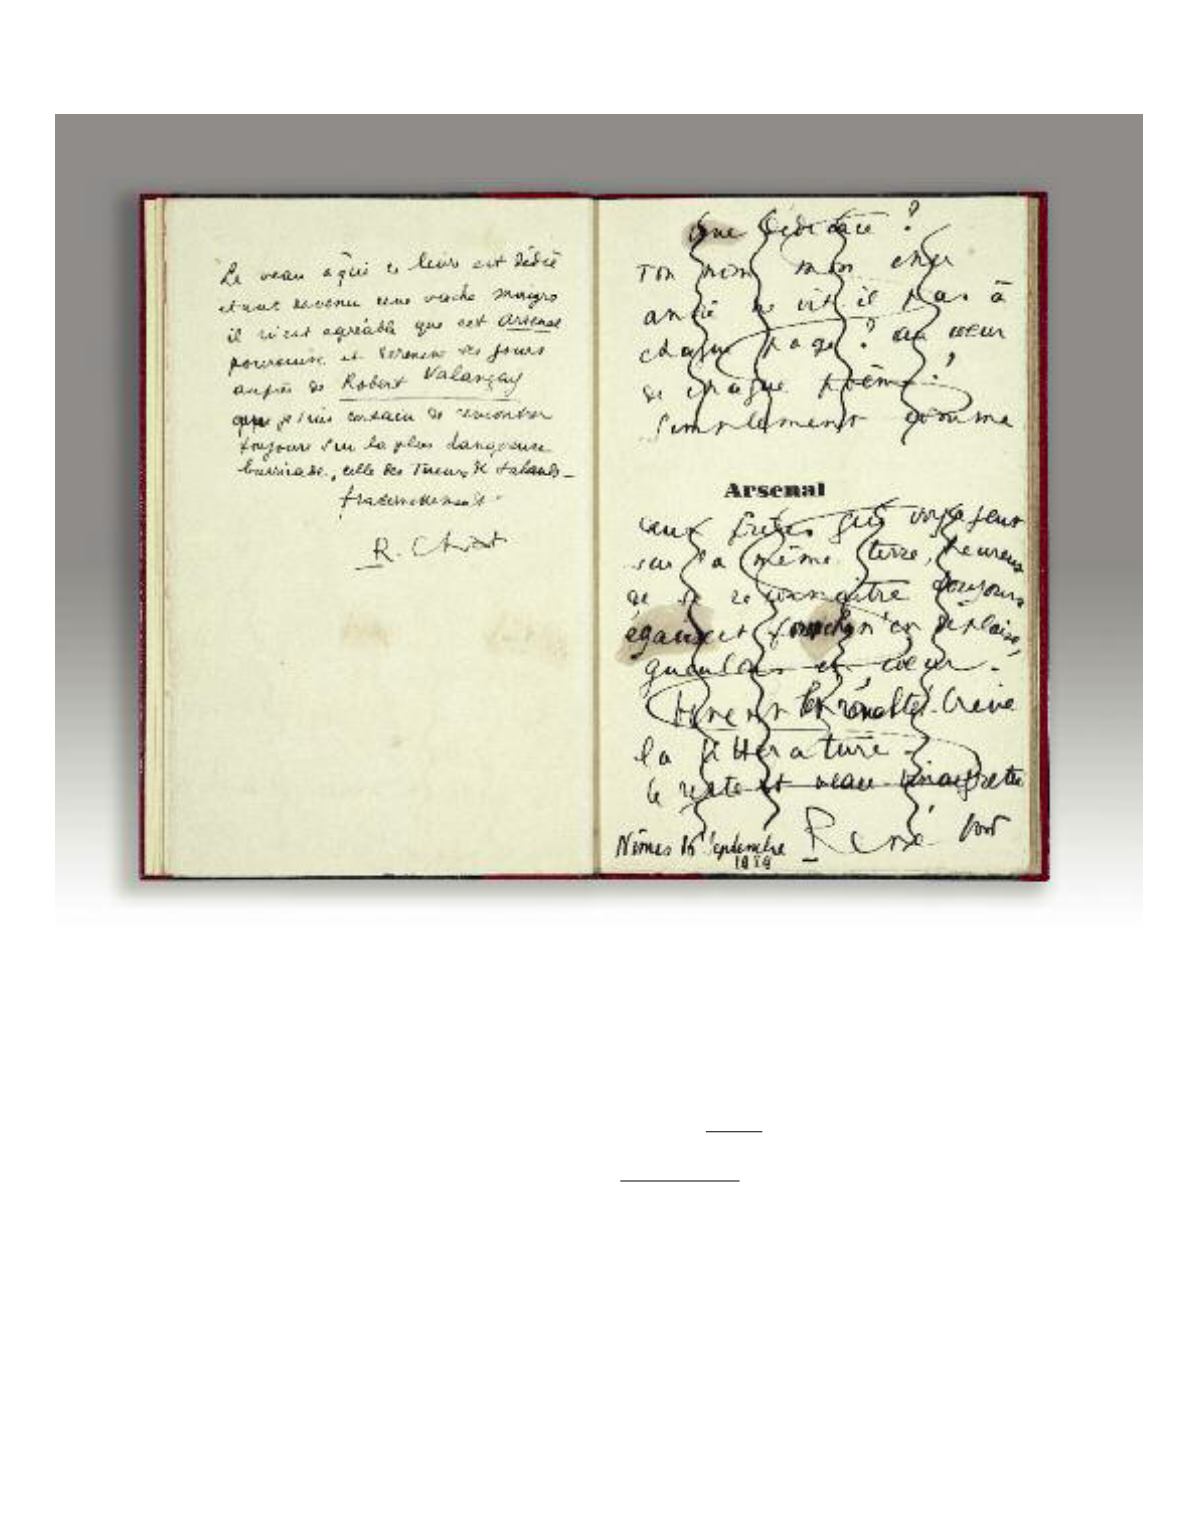 Le veau à qui ce livre est dédié
étant devenu une vache maigre
il m'est agréable que cet Arsenal
poursuive et termine ses jours
auprès de Robert Valançay
que je suis certain de rencontrer
toujours sur la plus dangereuse
barricade, celle des Tueurs de
fraternellement.
R. Char
Une dédicace ?
Ton nom mon cher
ami ne vit il pas à
chaque page ? au cœur
de chaque poème ?
Simplement comme
Arsenal
deux frères qui voyagent
sur la même terre, heureux
de se reconnaître toujours
égaux et n'en déplaise,
gueulons et cœur.
Crève
la littérature
le reste est veau vinaigrette
René
Nîmes Septembre